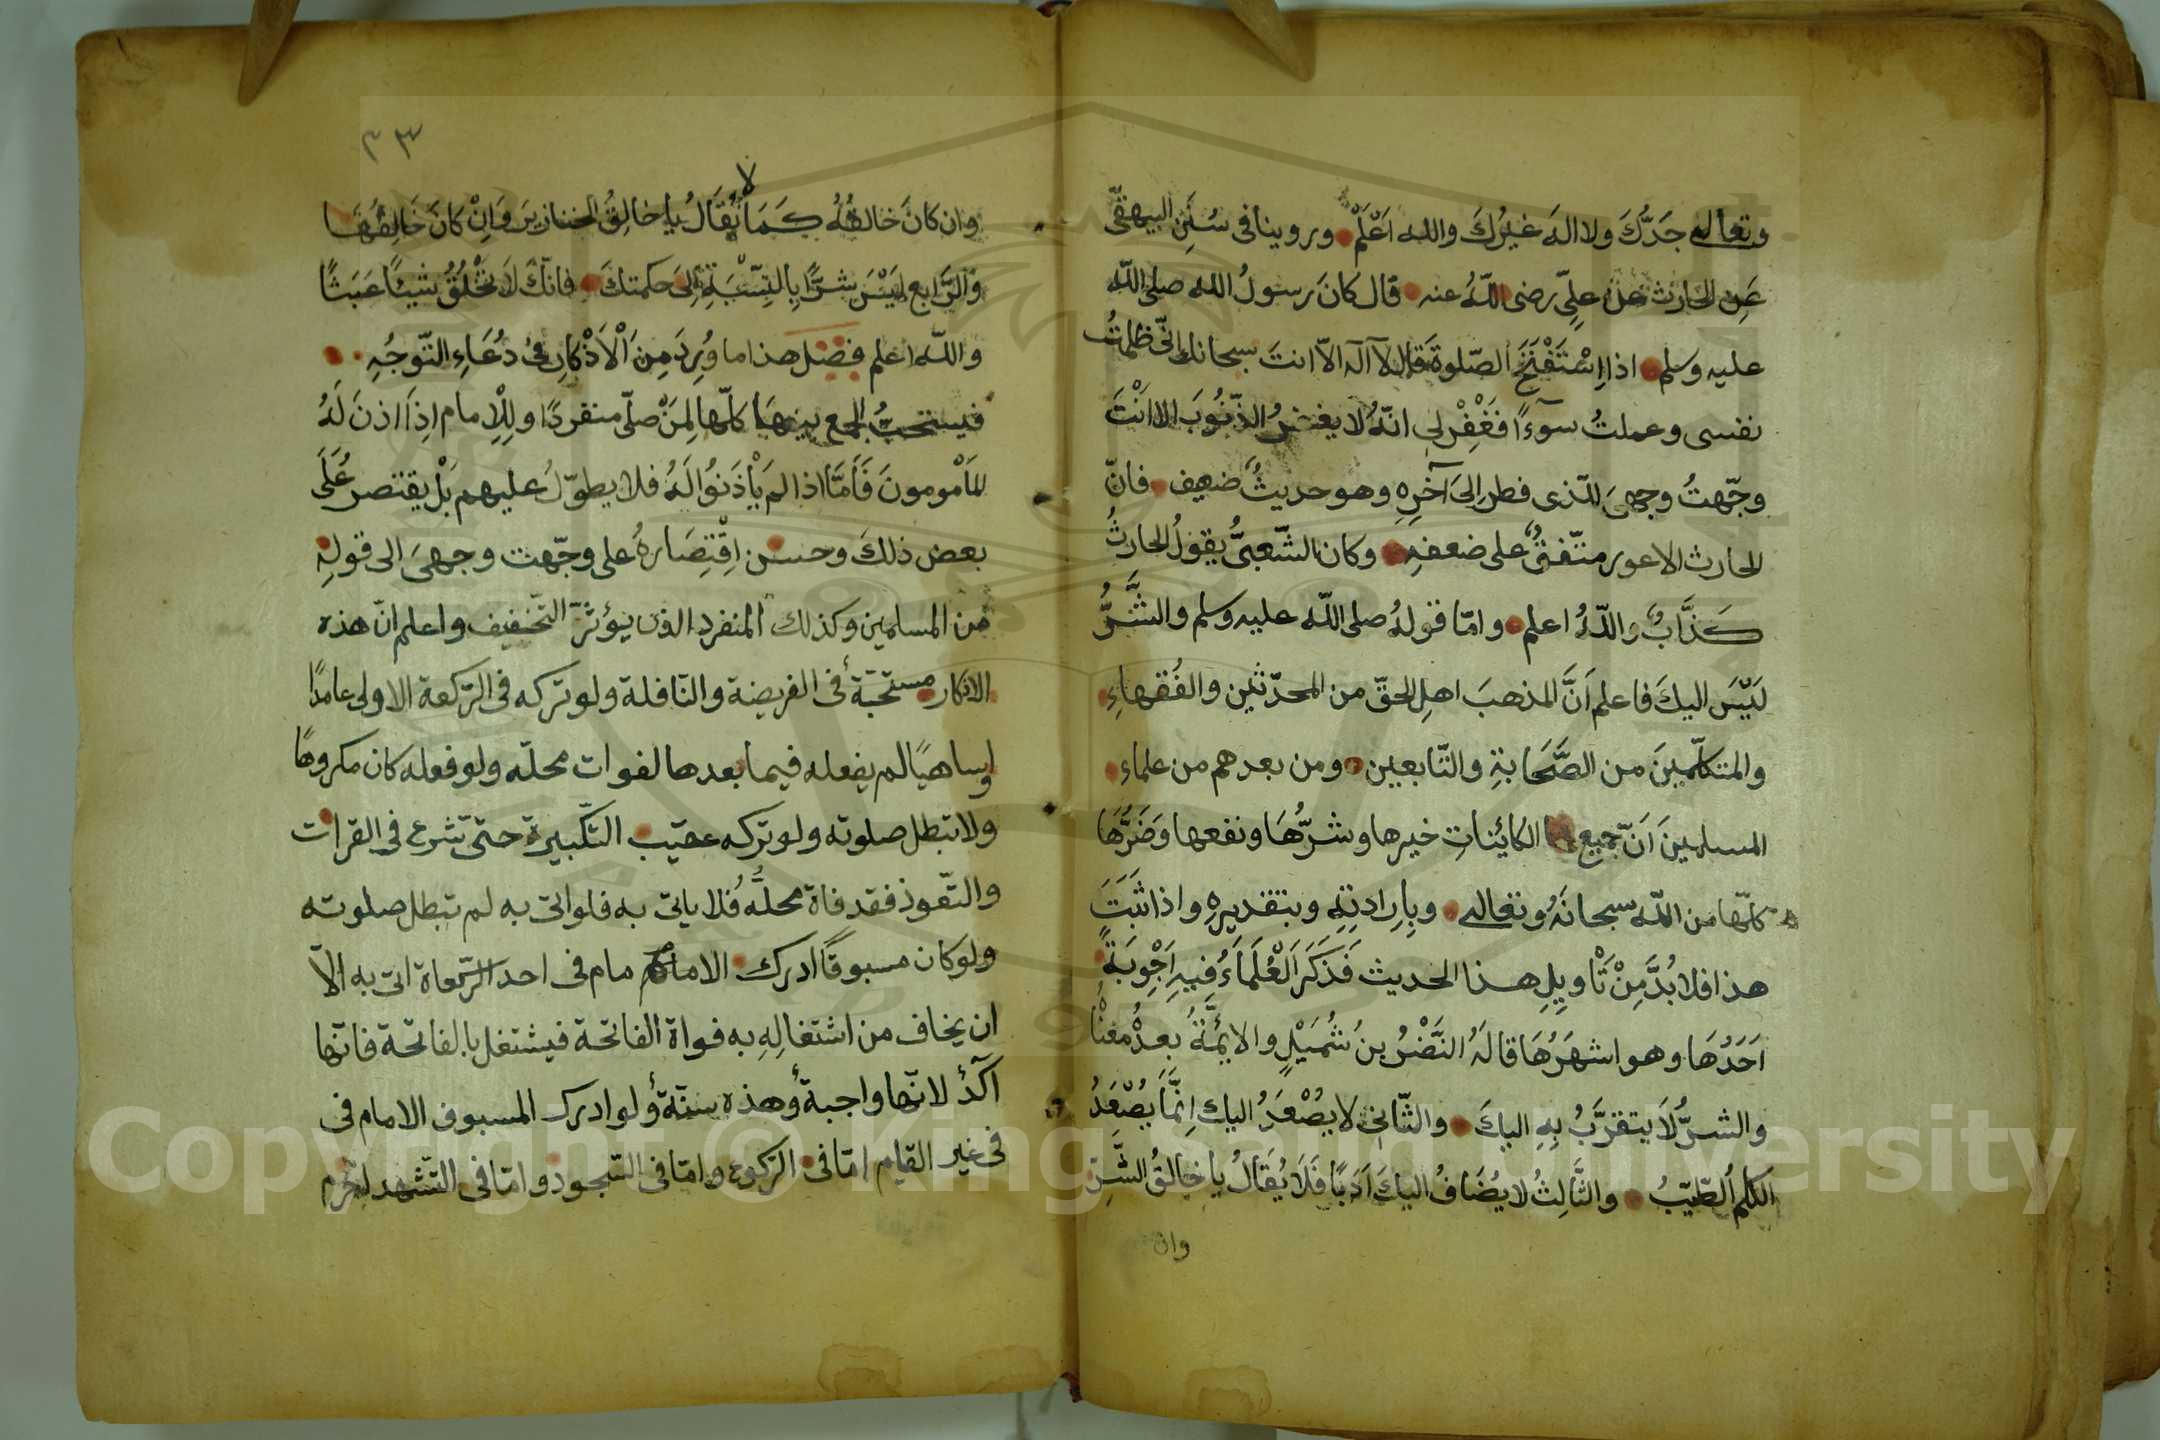 وتعالى جَدُّكَ ولا اله غيرُكَ والله اَعْلَمْ وروينا فى سُنَنِ البيهقىّ
عَنِ الحارث عن علىّ رضى اللّهُ عنه قال كَانَ رسولُ الله صلى اللّه
عليه وسلم اذا اِسْتَفْتَحَ الصّلوةَ قال لآ آله الاّ انتَ سبحانك انّى ظلمتُ
نفسى وعملتُ سوءًا فَغْفِرْلى انّهُ لا يغفرُ الذّنُوبَ الا انْتَ
وجّهتُ وجهىَ للّذى فطر اِلىَ آخرِهِ وهو حديثٌ ضعيف فانّ
الحارث الاعور متّفقٌ على ضعفهِ وكان الشّعبىُّ يقولُ الحارثُ
كَذَّابٌ واللّهُ اعلم وامّا قولهُ صلى اللّه عليه وسلم والشَّرُّ
لَيْسَ اليكَ فاعلم اَنَّ المذهبَ اهلِ الحقّ من المحدّثين والفُقهاءِ
والمتكلّمينَ من الصَّحَابةِ والتّابعين ومن بعدهم من علماءِ
المسلمينَ اَنّ جميع الكائِناتِ خيرها وشرُّهَا ونفعها وَضَرُّهَا
كلّها من اللّه سبحانَهُ وتعالى وبِاِرادتِهِ وبتقديرِهِ واذا ثَبَتَ
هذا فلا بُدَّ مِنْ تَأْويلِ هذا الحديث فَذَكَرَ الْعُلَمَاءُ فيهِ اَجْوِبَةً
اَحَدُهَا وهو اشهَرُهَا قالَهُ النَّضْرُ بنُ شُمَيْلٍ والائمَّةُ بعدهُ معنْاُ
والشرُّ لاَ يتقرَّبُ بِهِ اليكَ والثّانى لا يَصْعَدُ اليك اِنَّمَا يَصْعَدُ
الكلم الطّيّبُ والثّالِثُ لا يُضَافُ اليكَ اَدَبًا فَلَا يُقَالُ يا خالقُ الشَّرِّ
وان
٣٣
لا
وان كَانَ خالقهُ كَمَا يُقَالُ يا خالِقُ الخنازيرَ وَاِنْ كَانَ خَالِقَهَا
والرّابع ليْسَ شرًّا بِالنِّسْبَةِ اِلىَ حكمتكَ فانّكَ لا تَخْلُقُ شيئًا عَبَثًا
واللّه اعلم فصل هذا ما وُرِدَ مِنَ اَلْاَذْكارِ فى دُعَاءِ التّوجُهِ
فيستحبُّ الجمع بينهَا كلّها لِمَنْ صلّى منفردًا ولِلْاِمام اِذَا اذنَ لَهُ
المَأْمومونَ فَاَمَّا اذا لم يَأْذَنُوا لَهُ فلا يطوّلُ عليهم بَلْ يقتصر عَلَى
بعض ذلكَ وحسن اِقْتِصَارهُ على وجّهت وجهىَ الى قولِهِ
من المسلمين وكذلك المنفرد الذى يؤثرّ التّخفيف واعلم انّ هذه
الاذكار مستحبّةٌ فى الفريضة والنّافلة ولو تركه فى الرّكعة الاولى عامدًا
وساهيًا لم يفعله فيما بعدها لفوات محلّه ولو فعله كان مكروهًا
ولا تبطل صلوته ولو تركه عقيب التّكبيرة حتى شرع فى القرات
والتعّوذ فقد فاة محلُّه فلا ياتى به فلو اتى به لم تبطل صلوته
ولو كان مسبوقًا ادرك الامام فى احد الرّكعاة اتى به الاّ
ان يخاف من اشتغالِهِ به فواة الفاتحة فيشتغل بالفاتحة فانّها
آكَدُ لانّها واجبةٌ وهذه سنّةٌ ولو ادرك المسبوق الامام فى
فى غير القيام امّا فى الرّكوع وامّا فى السّجود وامّا فى التّشهد
Copyright © King Saud University